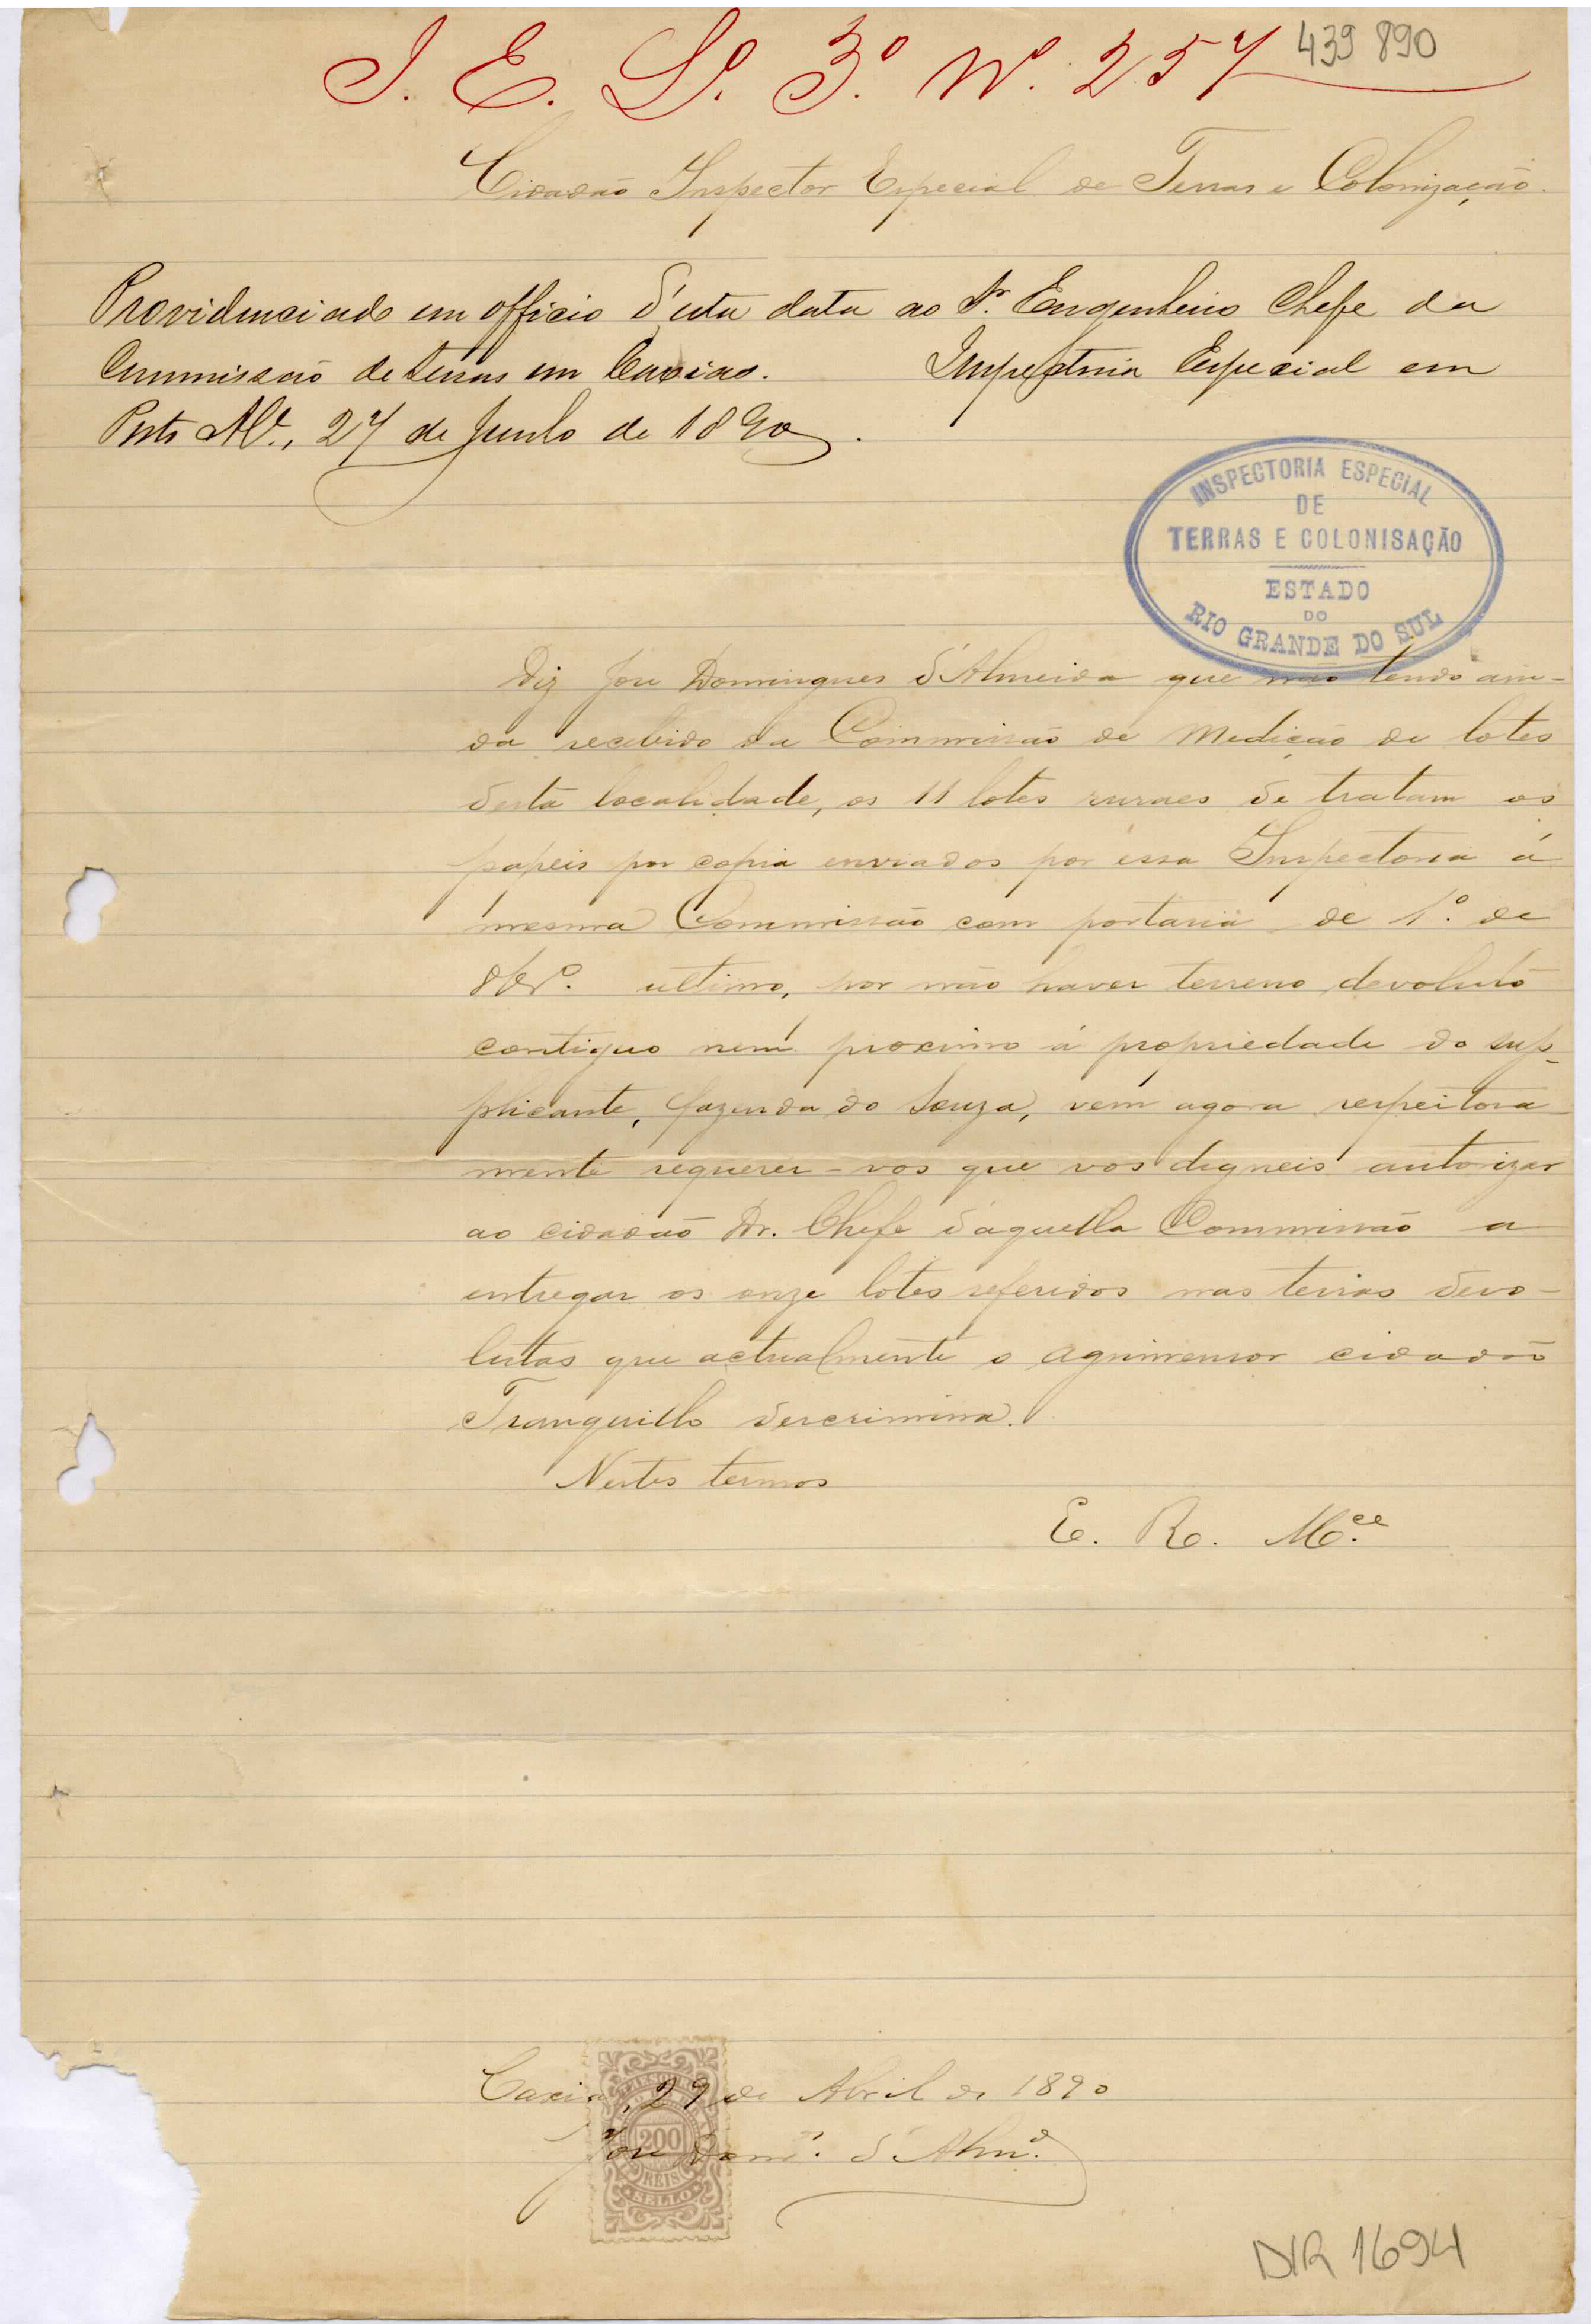 I. E. L.º 3.º Nº. 257
439 890
Cidadão Inspector Especial de Terras e Colonização.
Providenciado em officio d'esta data ao Sr. Engenheiro Chefe da
Commissão de terras em Caxias. Inspectoria Especial em
Porto Al.e, 27 de Junho de 1890.
INSPECTORIA ESPECIAL
DE
TERRAS E COLONISAÇÃO
ESTADO
DO
RIO GRANDE DO SUL
Diz José Domingues d'Almeida que não tendo ain-
da recebido da Commissão de Medição de lotes
desta localidade, os 11 lotes ruraes de tratam os
papeis por copia enviados por essa Inspectoria á
mesma Commissão com portaria de 1º. de
8br.º ultimo, por não haver terreno devoluto
contiguo nem proximo á propriedade do sup-
plicante, fazenda do Souza, vem agora respeitosa
mente requerer-vos que vos digneis autorizar
ao cidadão Dr. Chefe d'aquella Commissão a
entregar os onze lotes referidos nas terras devo-
lutas que actualmente o agrimensor cidadão
Tranquillo descrimina.
Nestes termos
E. R. M.ce
Caxias, 29 de Abril de 1890
José Dom.º d'Alm.da
200
RÉIS
SELLO
DIR 1694